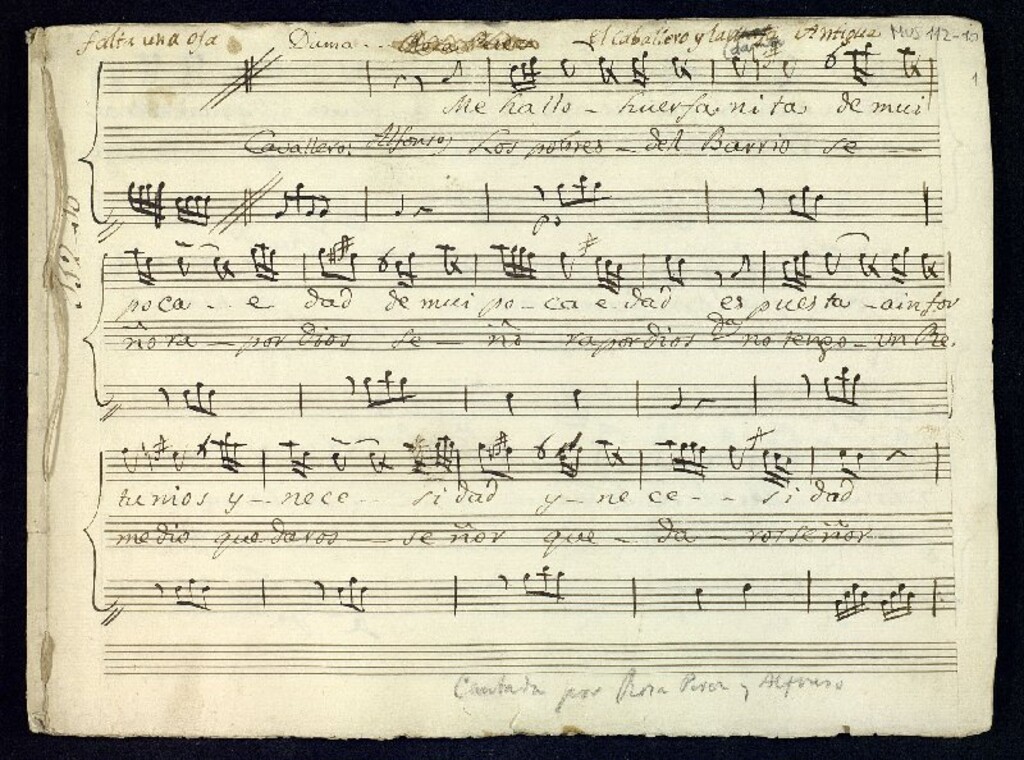 falta una oja Dama.. Rosa Perez El Caballero y la dama Antigua MUS 112-10
1
Me hallo - huerfanita de mui
Cavallero: Alfonso, Los pobres - del Barrio se -
po
poca - e dad de mui po - ca e dad es puesta - a infor
ñora - por Dios se - ñi - ra por dios da no tengo - un Re.
tunios y - nece - sidad y - ne ce - - sidad
medio que daros - señor que - da - ros señor
Cantada por Rosa Perez y Alfonso